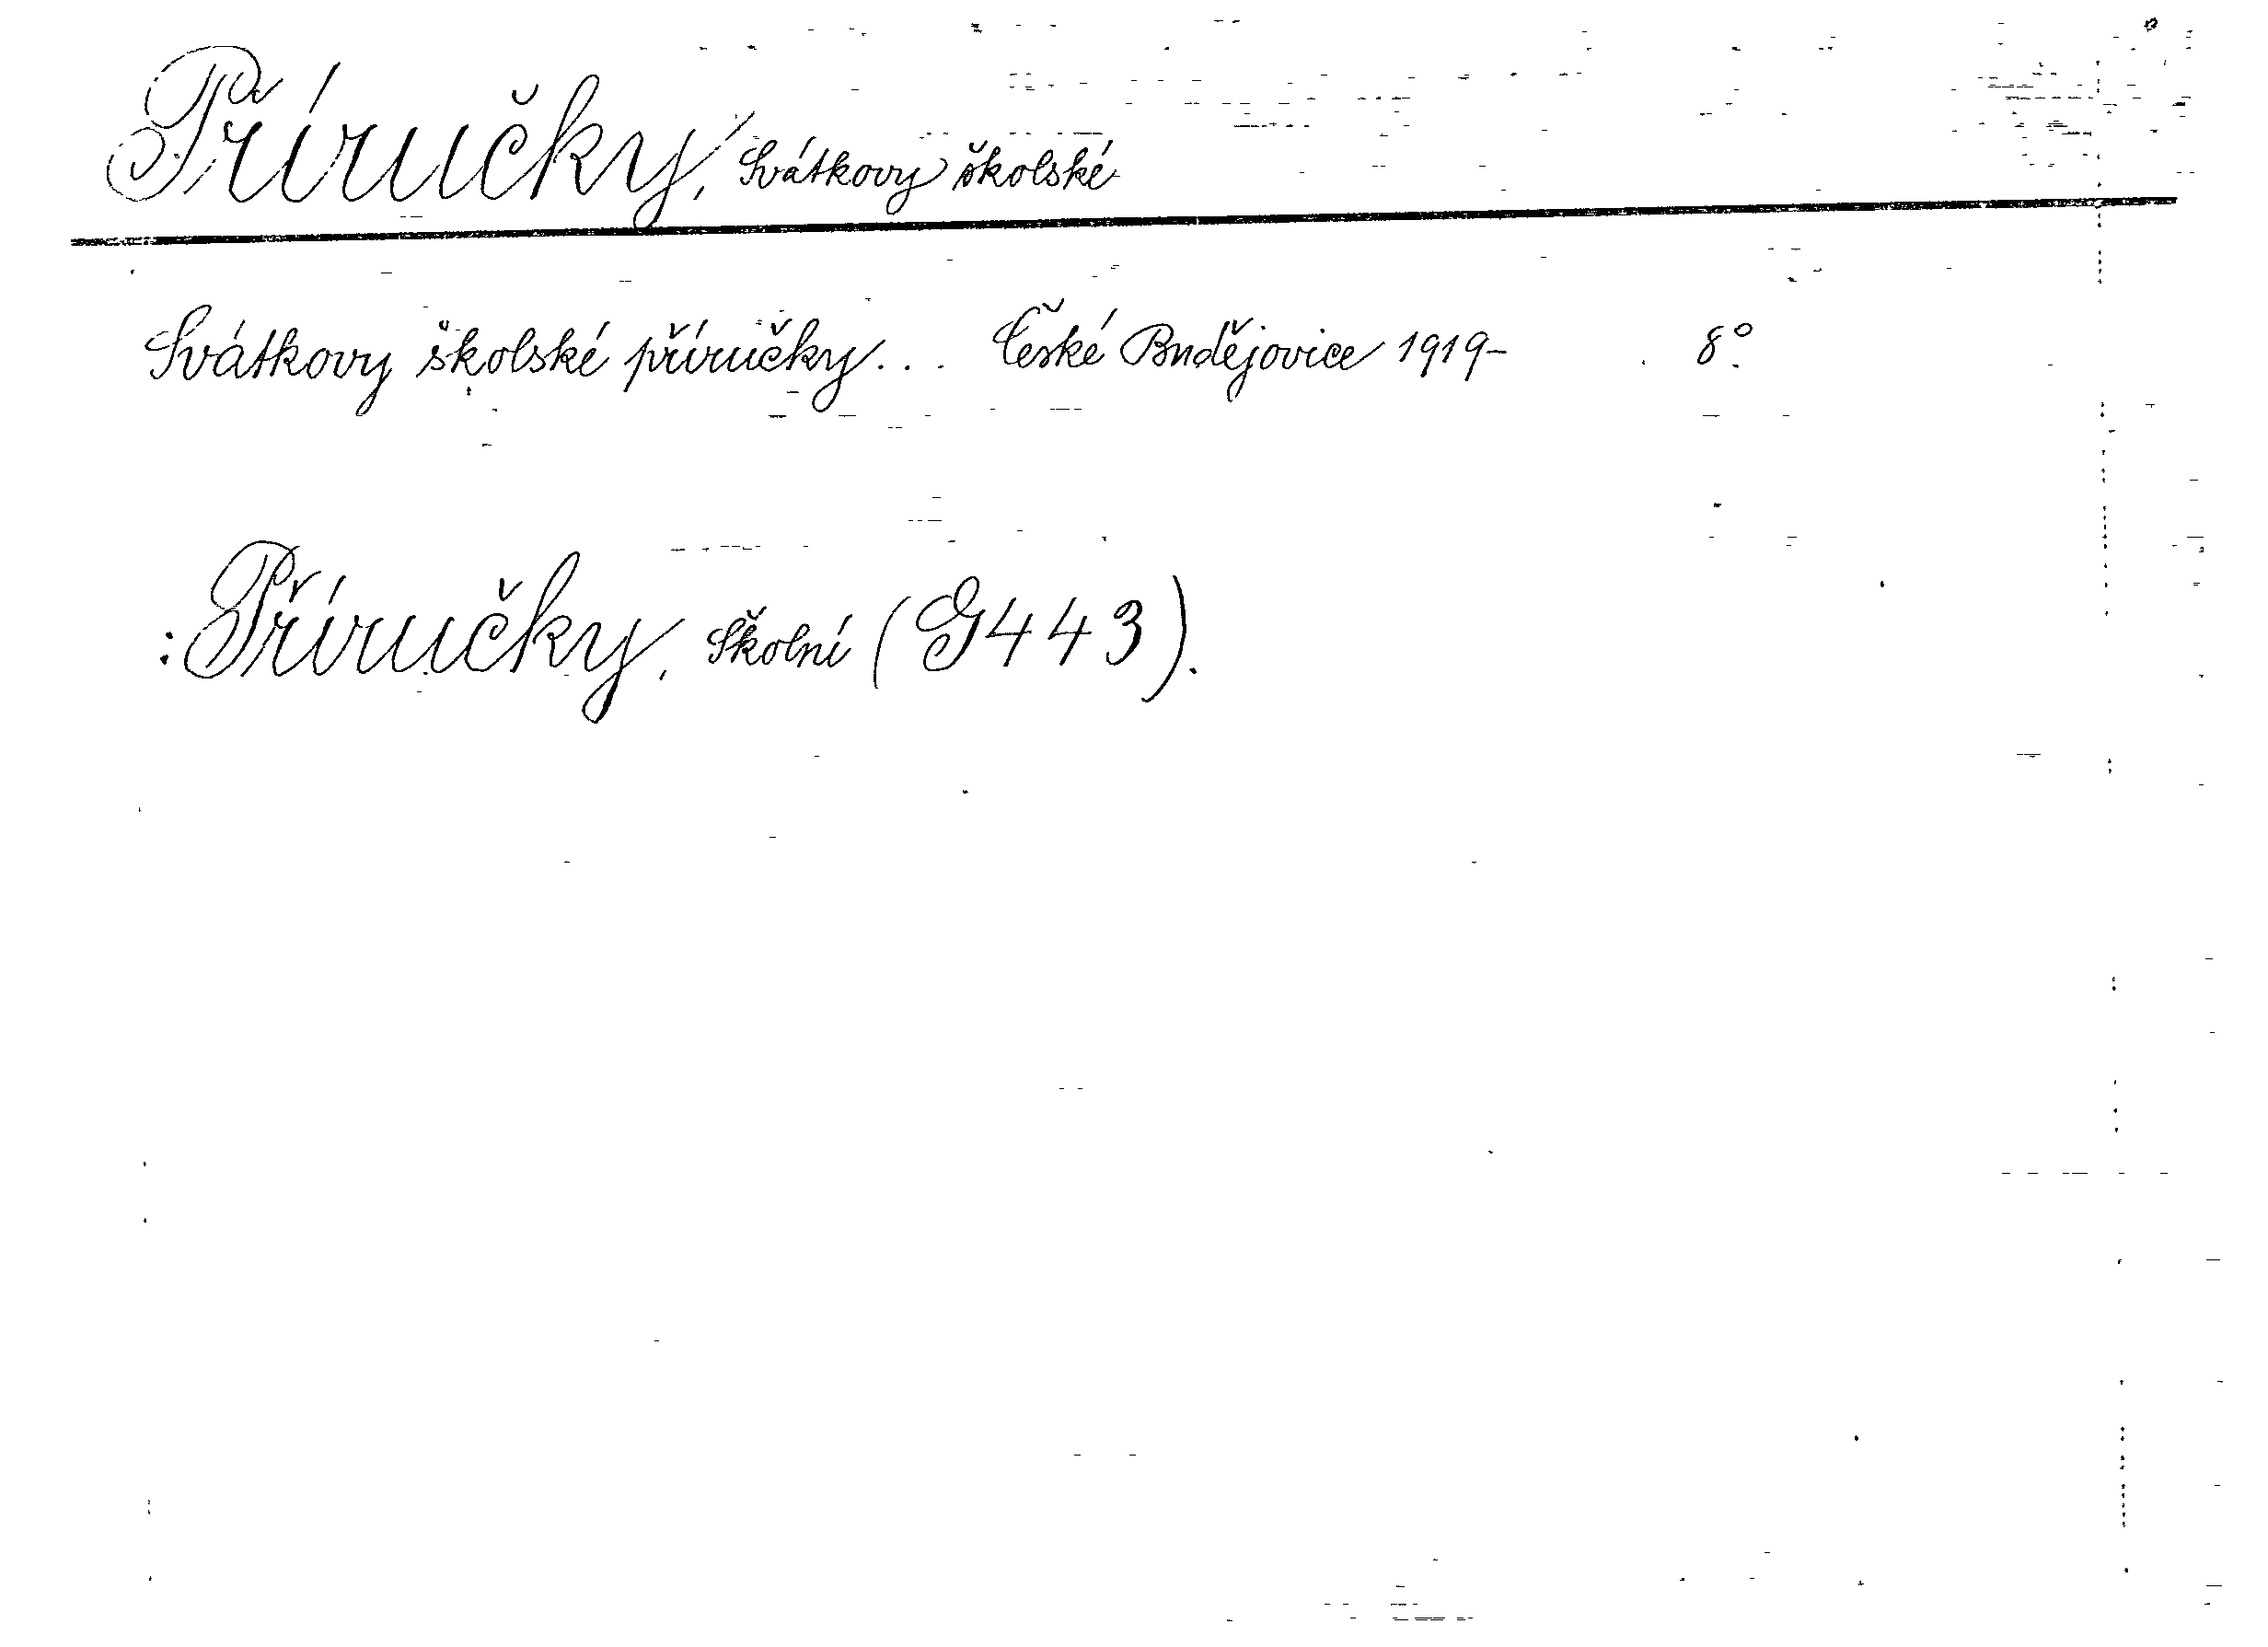 Příručky, Svátkovy školské
Svátkovy školské příručky... České Budějovice 1919- 8°.
: Příručky, Školní (G443).